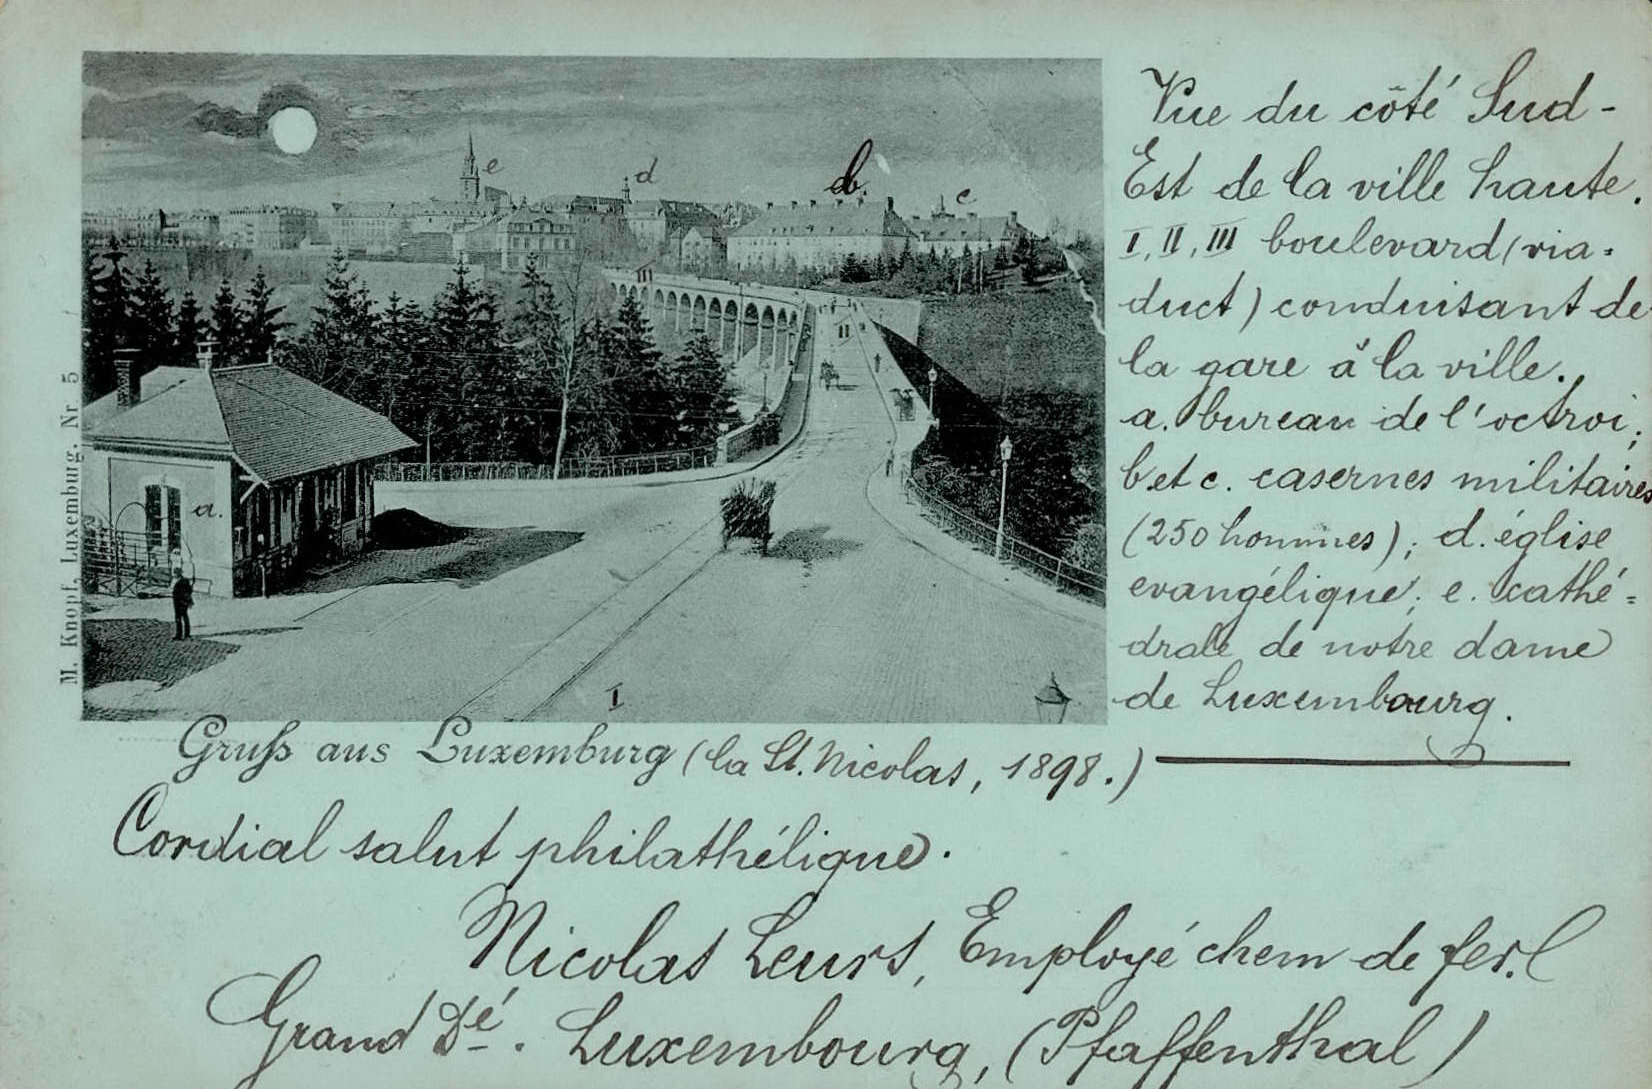 Vue du côté Sud-
Est de la ville haute.
I, II, III boulevard (via=
duct) conduisant de
la gare à la ville.
a. bureau de l'octroi;
b. et c. casernes militaires
(250 hommes); d. église
evangélique; e. cathé=
drale de notre dame
de Luxembourg.
e
d
b.
c
II
III
a.
I
M. Knopf, Luxemburg. Nr 5
Gruſs aus Luxemburg (la St. Nicolas, 1898.)
Cordial salut philathélique.
Nicolas Leurs, Employé chem de fer.
Grand Dé. Luxembourg, (Pfaffenthal)